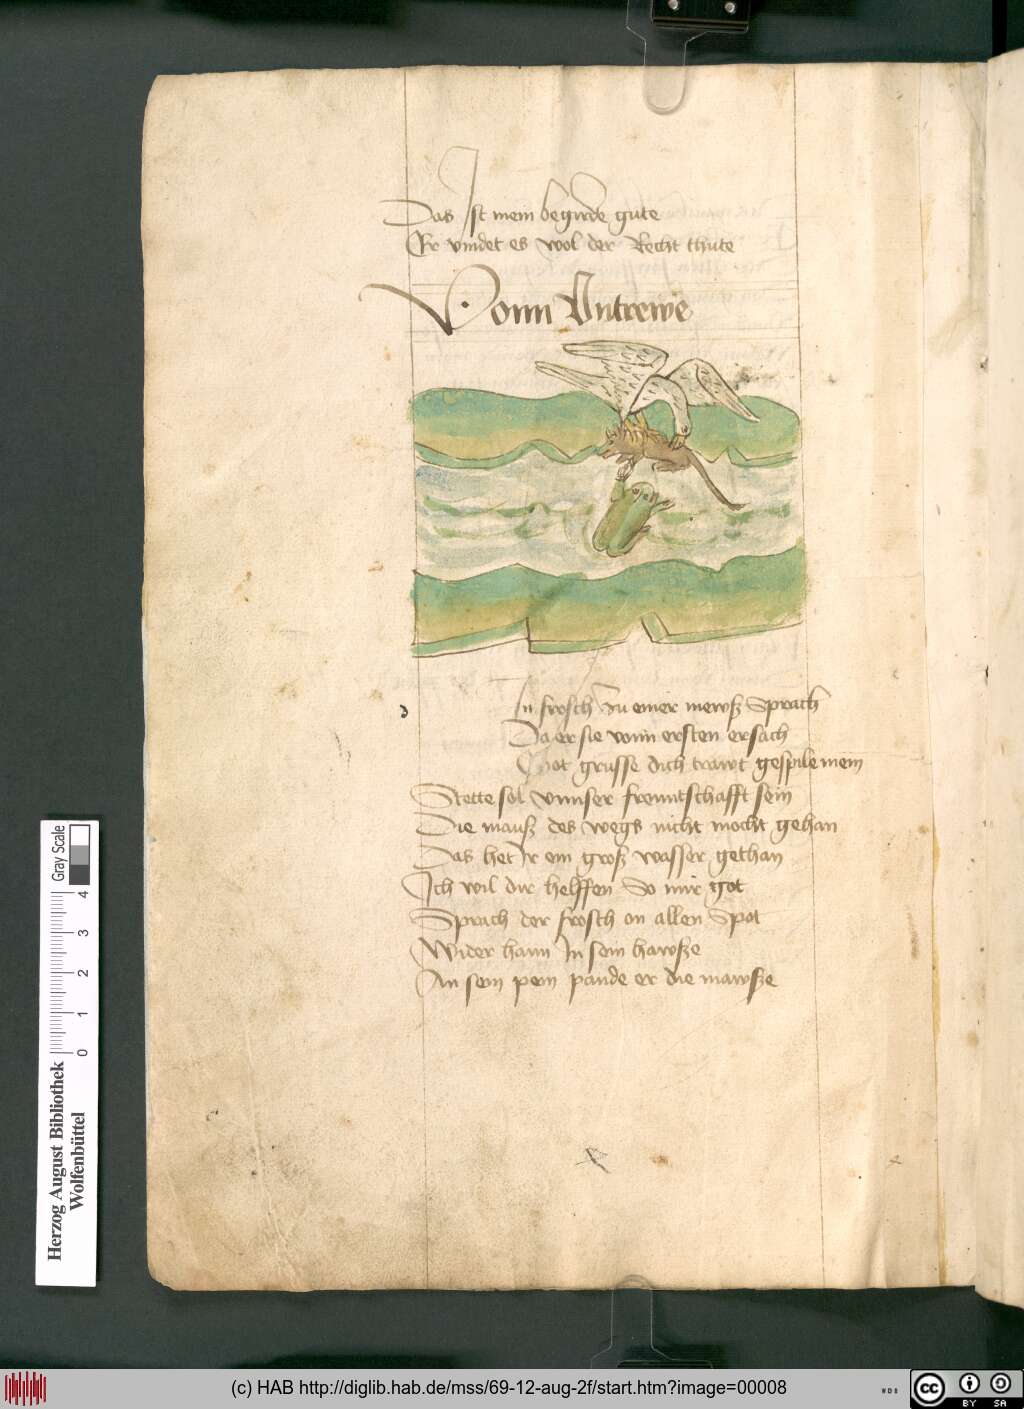 Das Ist mein begirde gute
Er vindet es wol der Recht thute
Vonn Vntrewe
In frosch zu einer mewsz Sprach
Da er sie vonn ersten ersach
Got grusse dich trawt gespile mein
Stette sol vnnser freuntschafft sein
Die mausz des wegs nicht mocht gehan
Das het Ir ein grosz wasser gethan
Ich wil dir helffen So mir got
Sprach der frosch on allen Spot
Wider hann In sein hawsze
An sein pein pande er die mawsze
Gray Scale
4
3
2
1
0
Herzog August Bibliothek
Wolfenbüttel
(c) HAB http://diglib.hab.de/mss/69-12-aug-2f/start.htm?image=00008
WDB
cc
BY SA